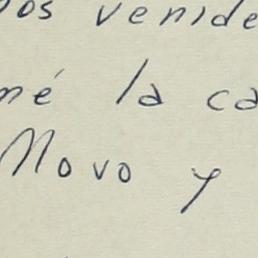 os venide
mé la ca
Movo y